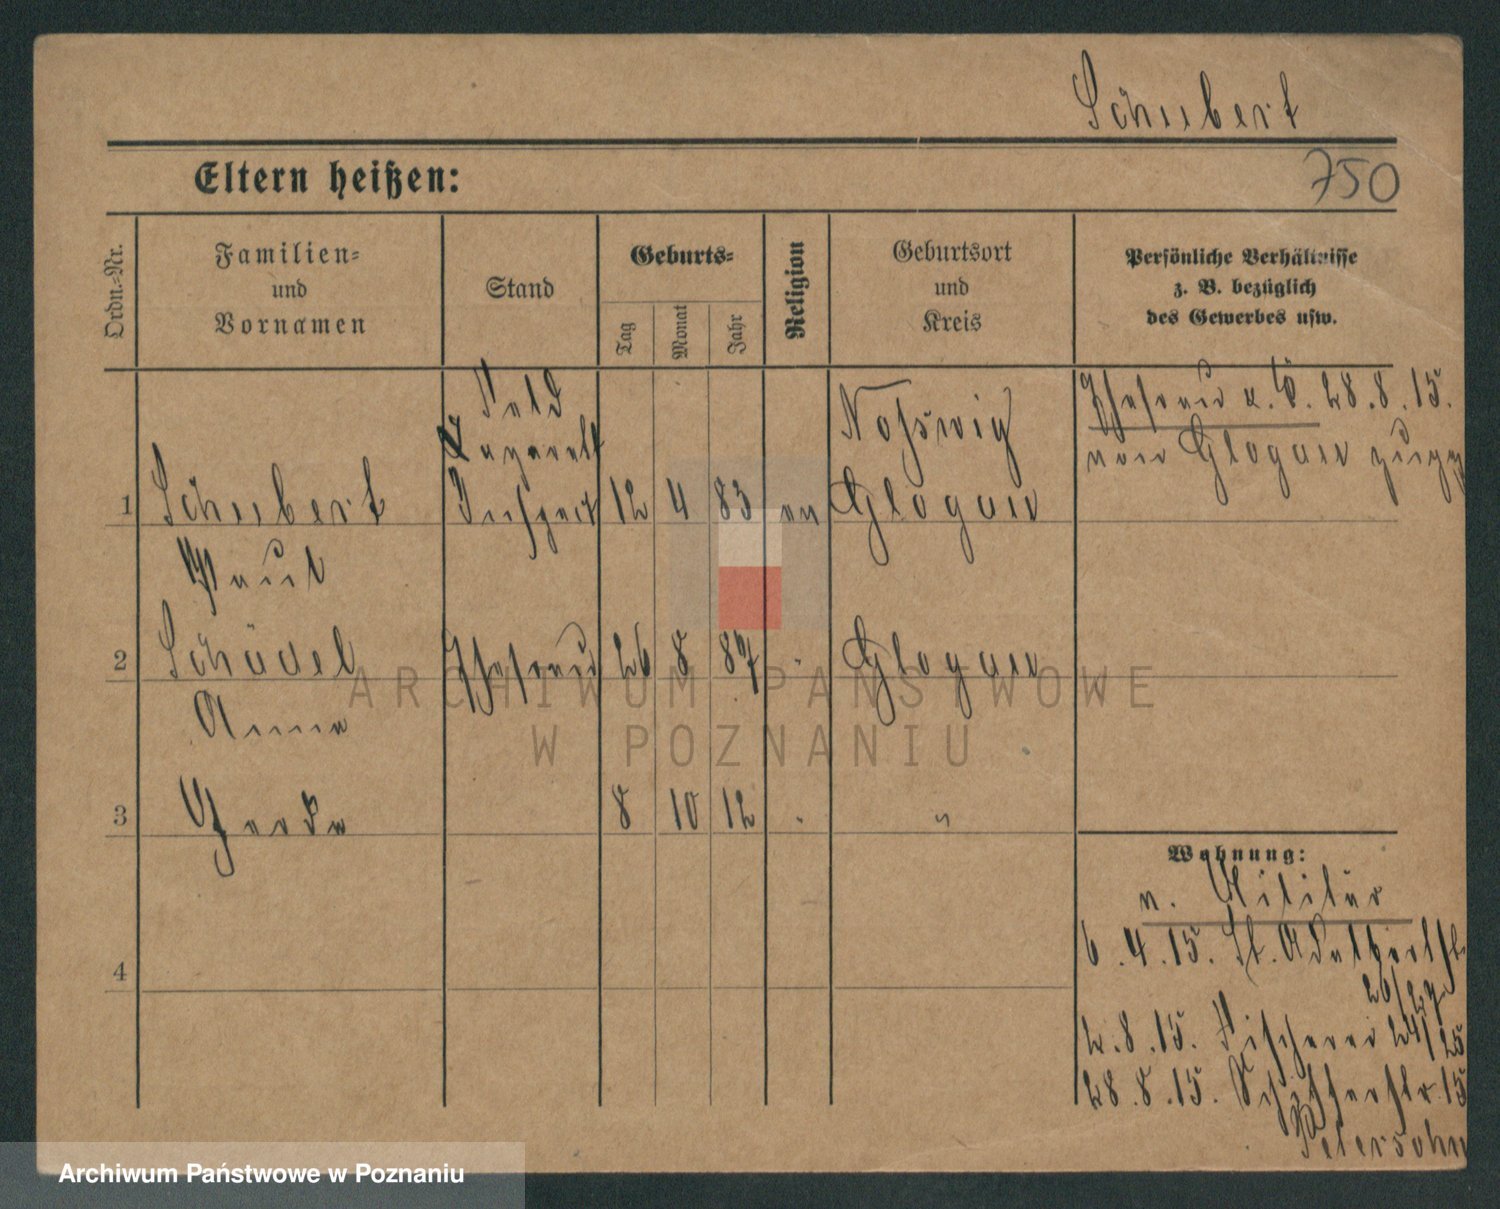 Schubert
750
Eltern heißen:
Ordn.-Nr.
Familien-
und
Vornamen
Stand
Geburts-
Tag
Monat
Jahr
Religion
Geburtsort
und
Kreis
Persönliche Verhältnisse
z. B. bezüglich
des Gewerbes usw.
Feld
Noßwig
Ehefrau u. K. 28.8.15.
von Glogau zugez
1 Schubert 12 4 83 ev Glogau
Paul
2 Schädel Ehefrau 26 8 87 " Glogau
Anna
3 Gerda 8 10 12 " "
Wohnung:
v. Militär
4
6.4.15. St. Adalbertstr.
26/27
2.8.15. Fischerei 24/25
28.8.15. Schifferstr. 15
Petersohn
ARCHIWUM PAŃSTWOWE
W POZNANIU
Archiwum Państwowe w Poznaniu